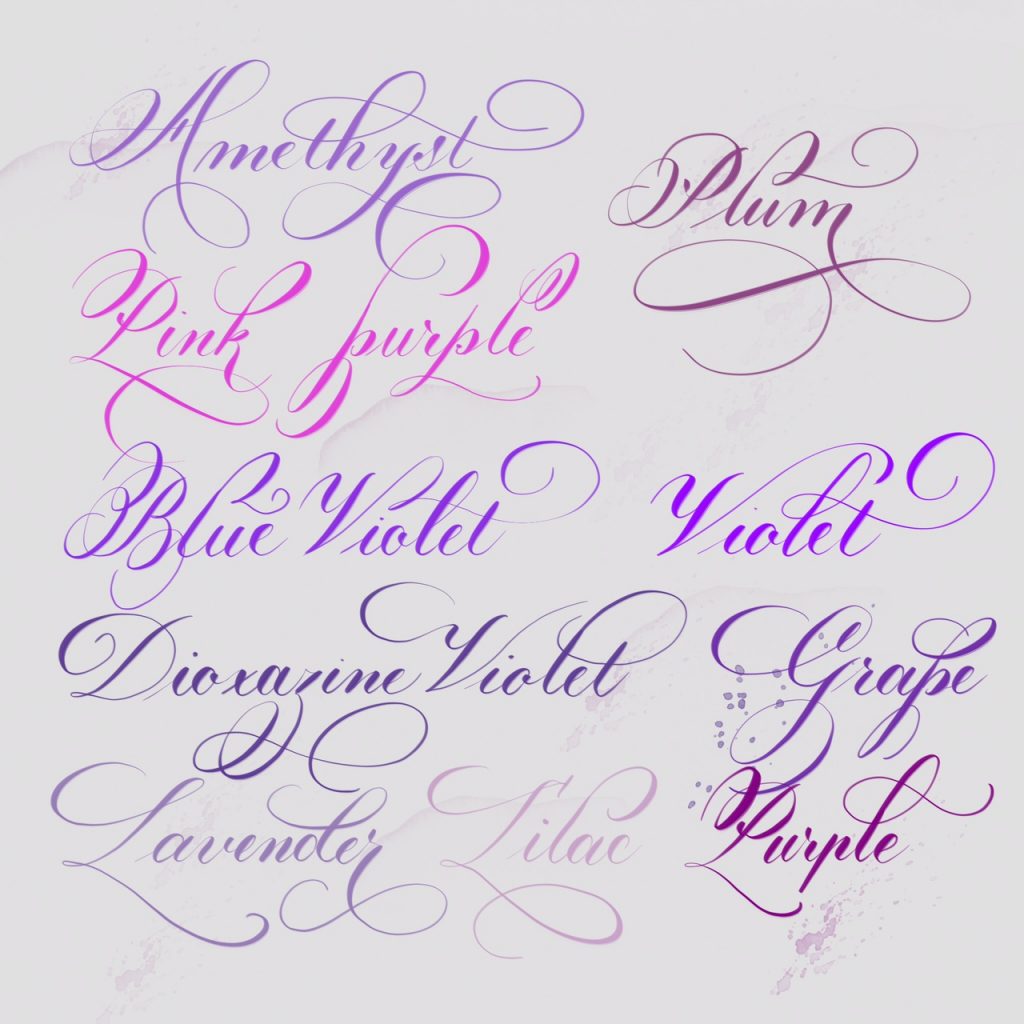 Amethyst
Plum
Pink purple
Blue Violet Violet
Dioxazine Violet Grape
Lavender Lilac Purple